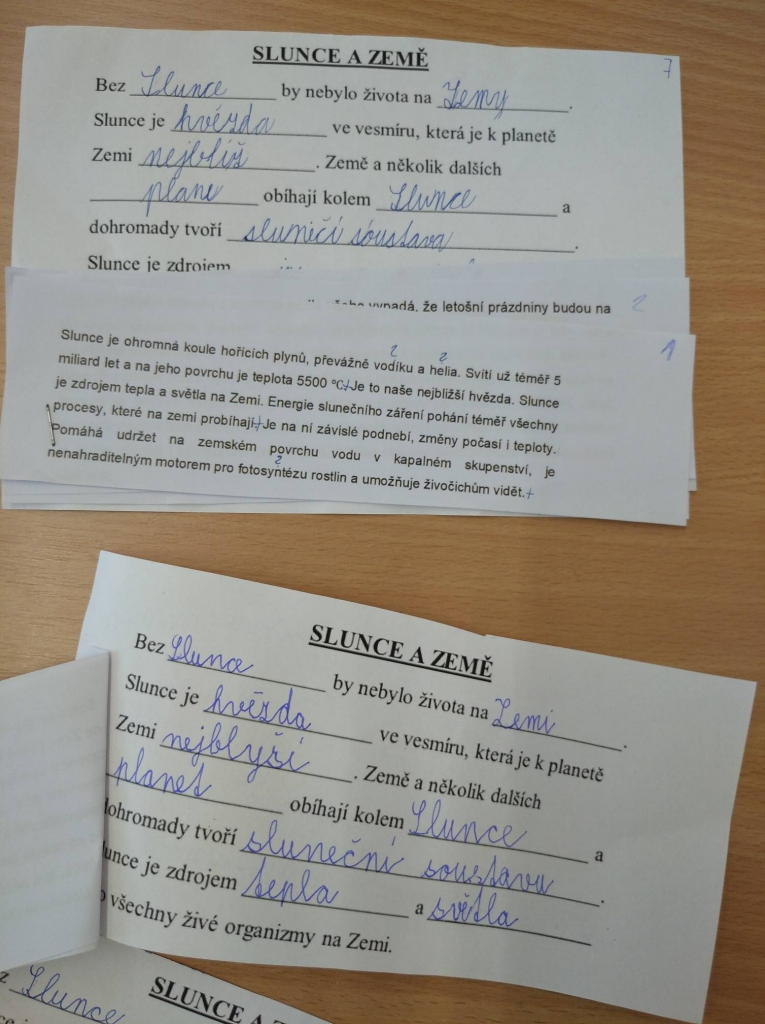 SLUNCE A ZEMĚ 7
Bez Slunce by nebylo života na Zemy.
Slunce je hvězda ve vesmíru, která je k planetě
Zemi nejblíš. Země a několik dalších
plane obíhají kolem Slunce a
dohromady tvoří slumičí soustava.
Slunce je zdrojem
vypadá, že letošní prázdniny budou na 2
1
Slunce je ohromná koule hořících plynů, převážně vodíku a helia. Svítí už téměř 5
miliard let a na jeho povrchu je teplota 5500 °C. Je to naše nejbližší hvězda. Slunce
je zdrojem tepla a světla na Zemi. Energie slunečního záření pohání téměř všechny
procesy, které na zemi probíhají. Je na ní závislé podnebí, změny počasí i teploty.
Pomáhá udržet na zemském povrchu vodu v kapalném skupenství, je
nenahraditelným motorem pro fotosyntézu rostlin a umožňuje živočichům vidět.
SLUNCE A ZEMĚ
Bez Slunce by nebylo života na Zemi.
Slunce je hvězda ve vesmíru, která je k planetě
Zemi nejblyší. Země a několik dalších
planet obíhají kolem Slunce a
dohromady tvoří sluneční soustavu.
unce je zdrojem tepla a světla
o všechny živé organizmy na Zemi.
SLUNCE A Z
z Slunce